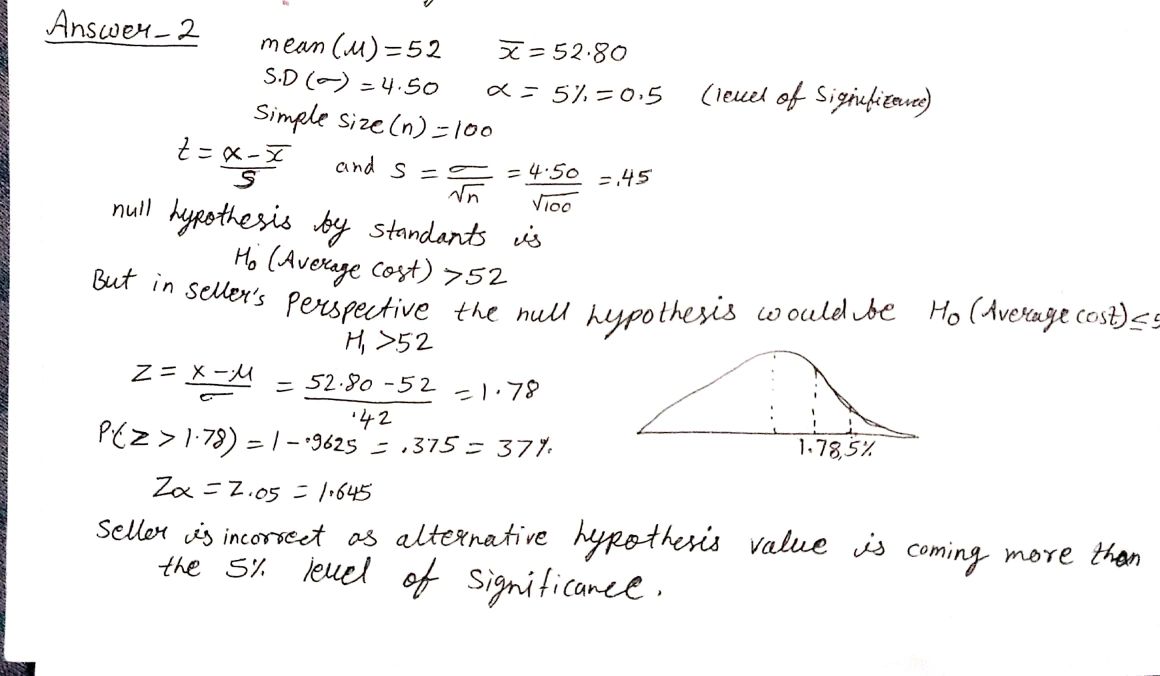 Answer-2
mean (μ) = 52 x̄ = 52.80
S.D (σ) = 4.50 α = 5% = 0.5 (level of Significance)
Simple Size (n) = 100
t = α - x̄ / S and S = σ / √n = 4.50 / √100 = .45
null hypothesis by standants is
H₀ (Average cost) > 52
But in seller's Perspective the null hypothesis would be H₀ (Average cost) ≤ 5
H₁ > 52
Z = x - μ / σ = 52.80 - 52 / .42 = 1.78
P(Z > 1.78) = 1 - .9625 = .375 = 37%
1.78, 5%
Zα = Z.05 = 1.645
Seller is incorrect as alternative hypothesis value is coming more than
the 5% level of Significance.